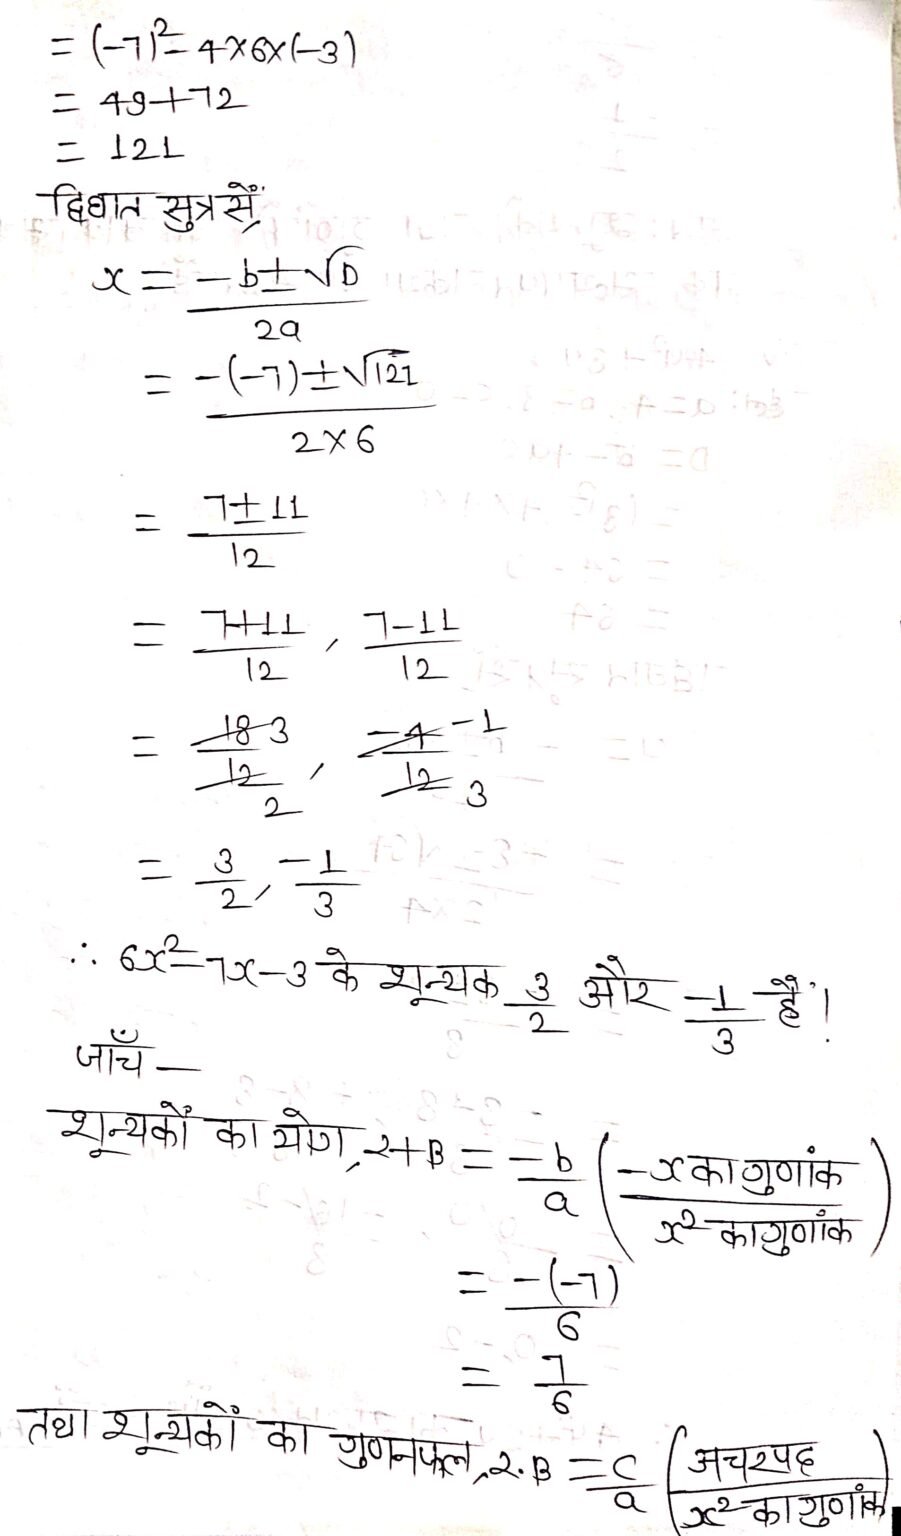 = (-7)² - 4×6×(-3)
= 49+72
= 121
द्विघात सुत्र सें,
x = (-b ± √D)/2a
= (-(-7) ± √121)/(2×6)
= (7 ± 11)/12
= (7+11)/12 , (7-11)/12
= 18/12 3/2 , -4/12 -1/3
= 3/2 , -1/3
∴ 6x²-7x-3 के शून्यक 3/2 और -1/3 हैं।
जाँच —
शून्यकों का योग, α+β = -b/a (-x का गुणांक / x² का गुणांक)
= -(-7)/6
= 7/6
तथा शून्यकों का गुणनफल, α.β = c/a (अचर पद / x² का गुणांक